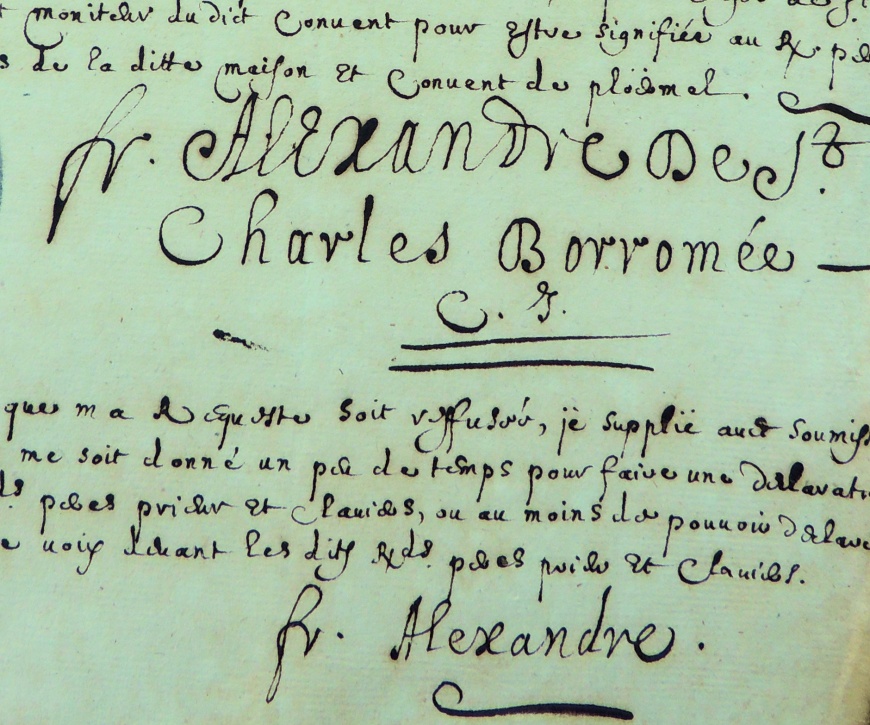 moniteur du dict Conuent pour estre signifiée au R. pe
de la ditte maison et Conuent de ploermel.
fr. Alexandre De St.
Charles Borromée
C. I.
que ma Requeste soit reffusée, je supplie auec soumiss
me soit donné un peu de temps pour faire une declarati
ds. peres prieur et Clauiers, ou au moins de pouuoir declare
uoix deuant les dits Rds. peres prieur et Clauiers.
fr. Alexandre.